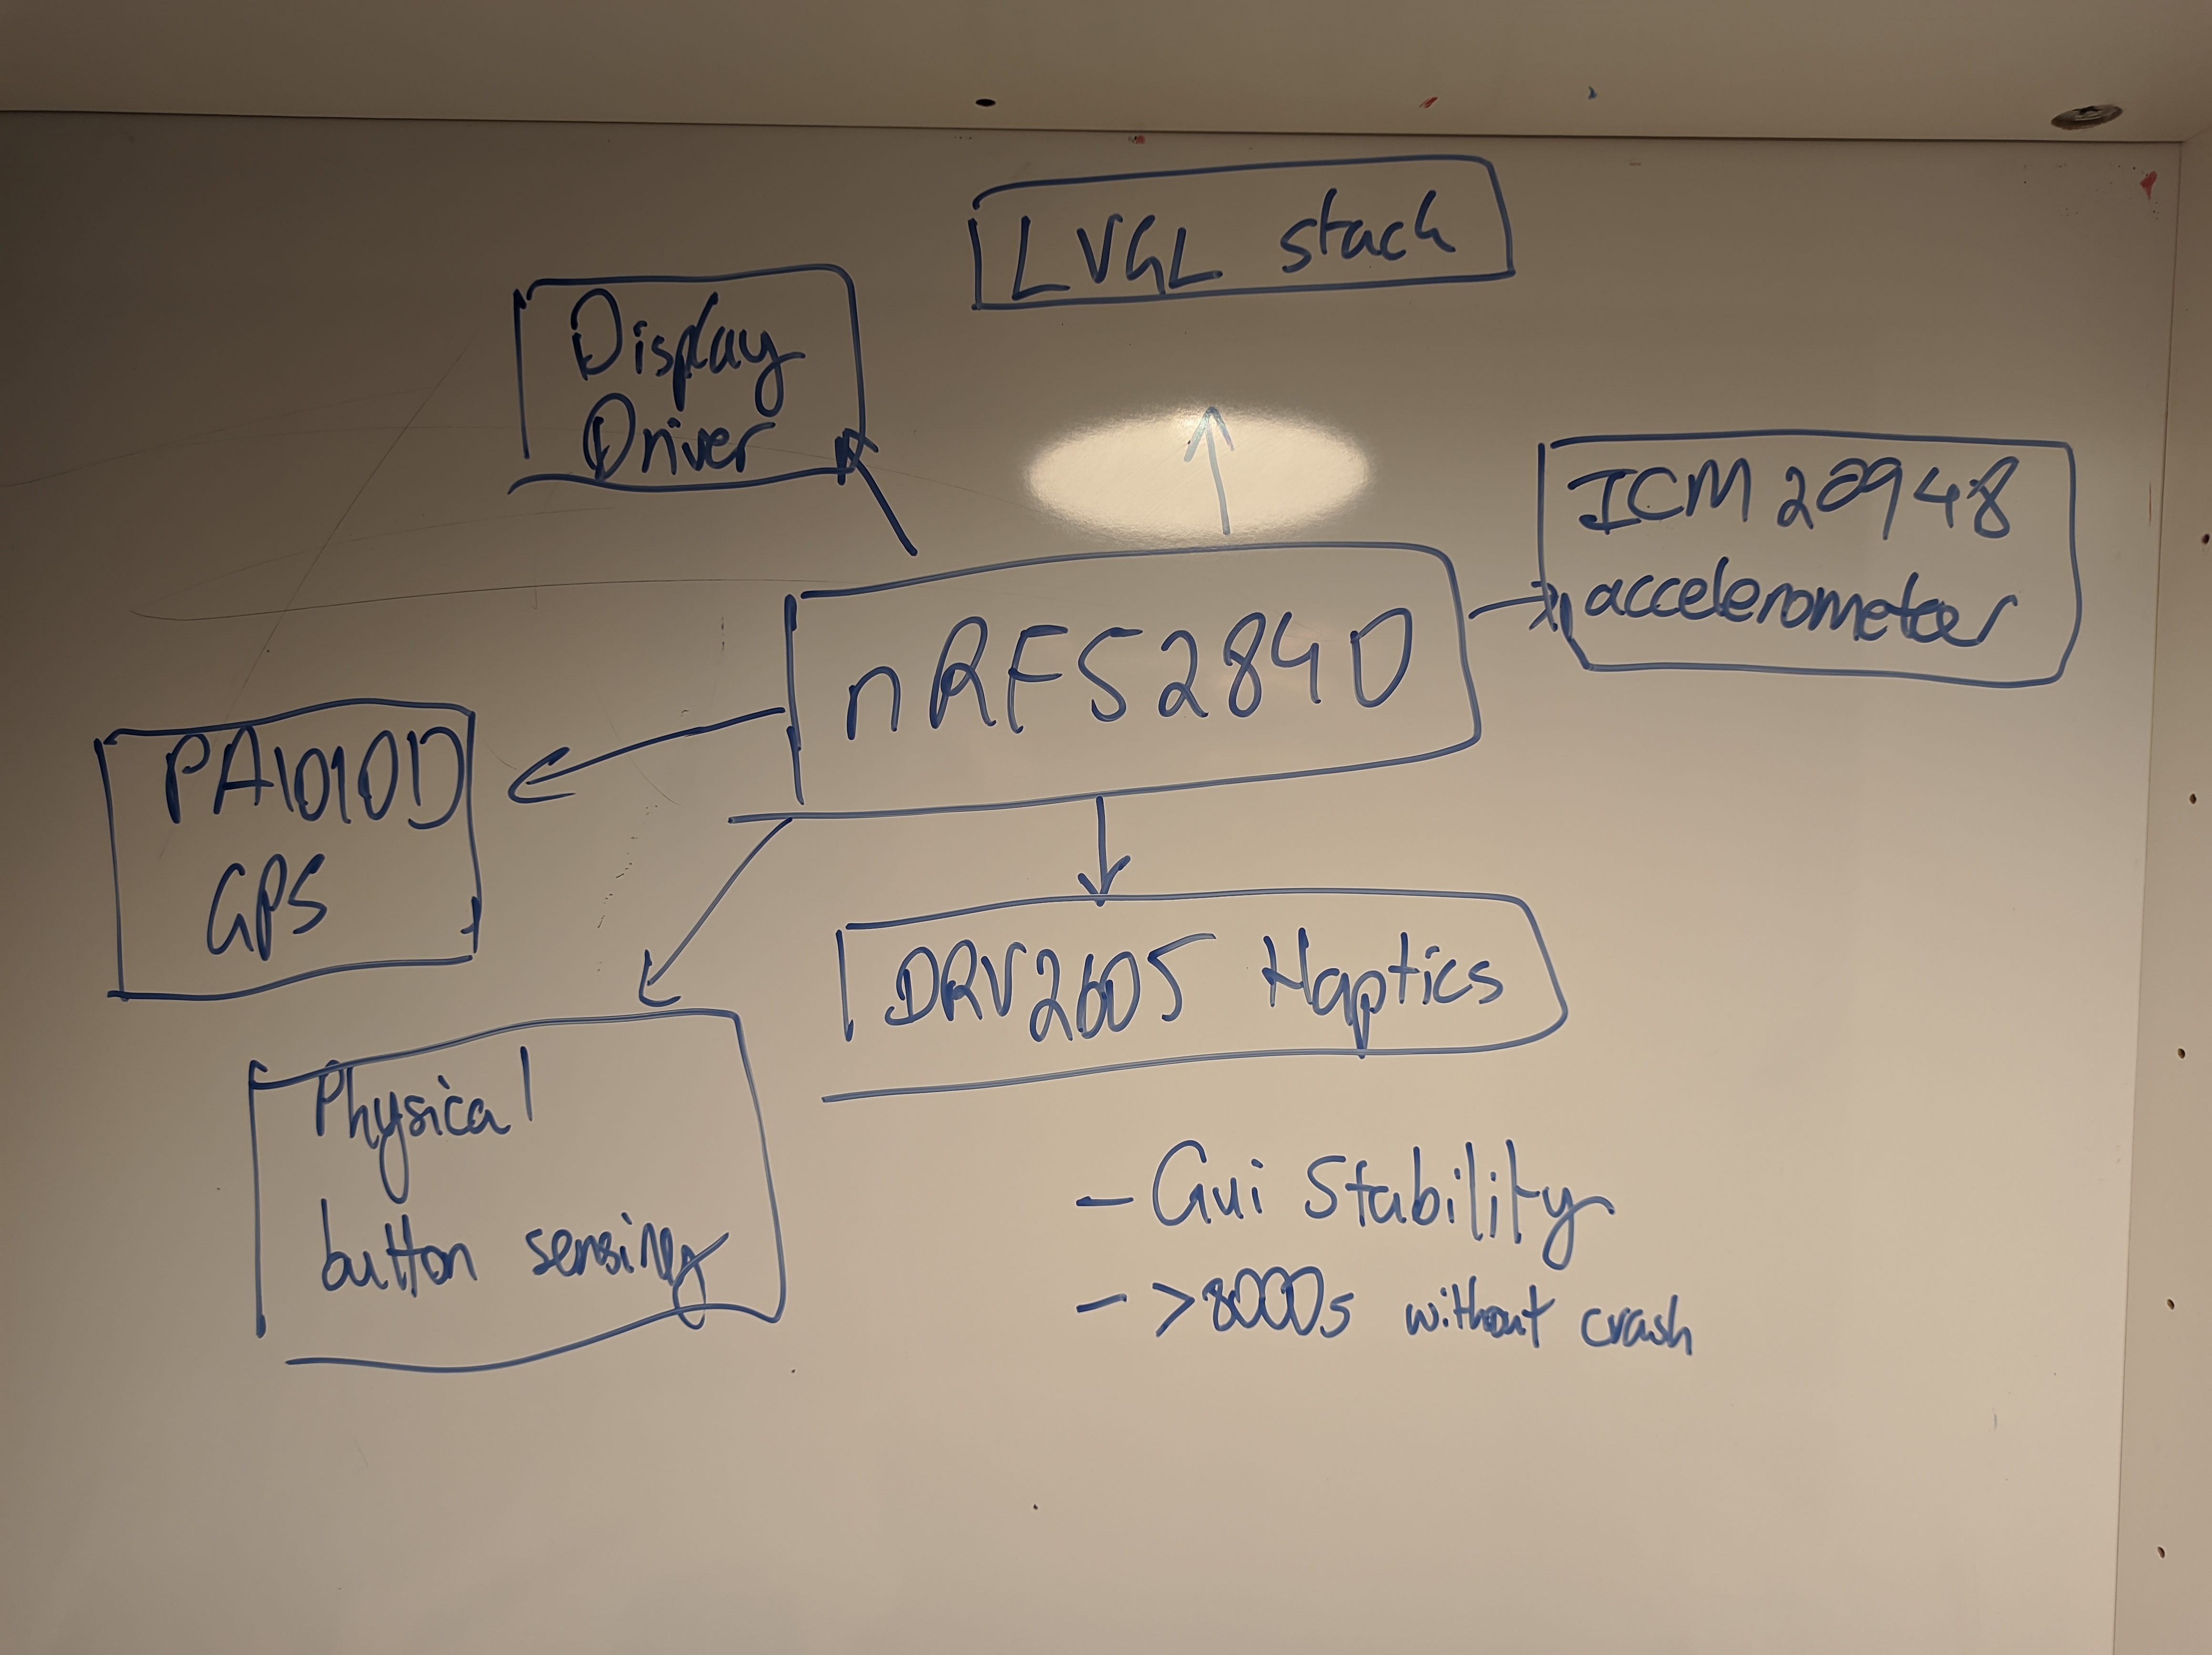 LVGL stack
Display
Driver
ICM20948
accelerometer
nRF52840
PA1010D
GPS
DRV2605 Haptics
Physical
button sensing
- Gui Stability
- >8000s without crash